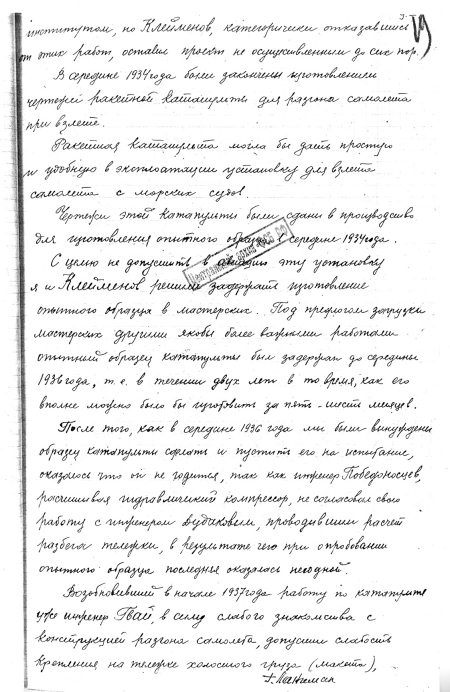 3.
институтом, но Клейменов, категорически отказавшись
от этих работ, оставив проект не осуществленным до сих пор.
В середине 1934 года были закончены изготовлением
чертежи ракетной катапульты для разгона самолета
при взлете.
Ракетная катапульта могла бы дать простую
и удобную в эксплоатации установку для взлета
самолета с морских судов.
Чертежи этой катапульты были сданы в производство
для изготовления опытного образца в середине 1934 года.
Центральный архив ФСБ РФ
С целью не допустить в авиацию эту установку
я и Клейменов решили задержать изготовление
опытного образца в мастерских. Под предлогом загрузки
мастерских другими якобы более важными работами
опытный образец катапульты был задержан до середины
1936 года, т.е. в течении двух лет в то время, как его
вполне можно было бы изготовить за пять-шесть месяцев.
После того, как в середине 1936 года мы были вынуждены
образец катапульты сделать и пустить его на испытание,
оказалось что он не годится, так как инженер Победоносцев,
расчитывая гидравлический компрессор, не согласовал свою
работу с инженером Дудаковым, проводившим расчет
разбега тележки, в результате чего при опробовании
опытного образца последнье оказалось негодной.
Возобновивший в начале 1937 года работу по катапульте
уже инженер Гвай, в силу слабого знакомства с
конструкцией разгона самолета, допустил слабость
крепления на тележке холостого груза (макета),
Г. Лангемак